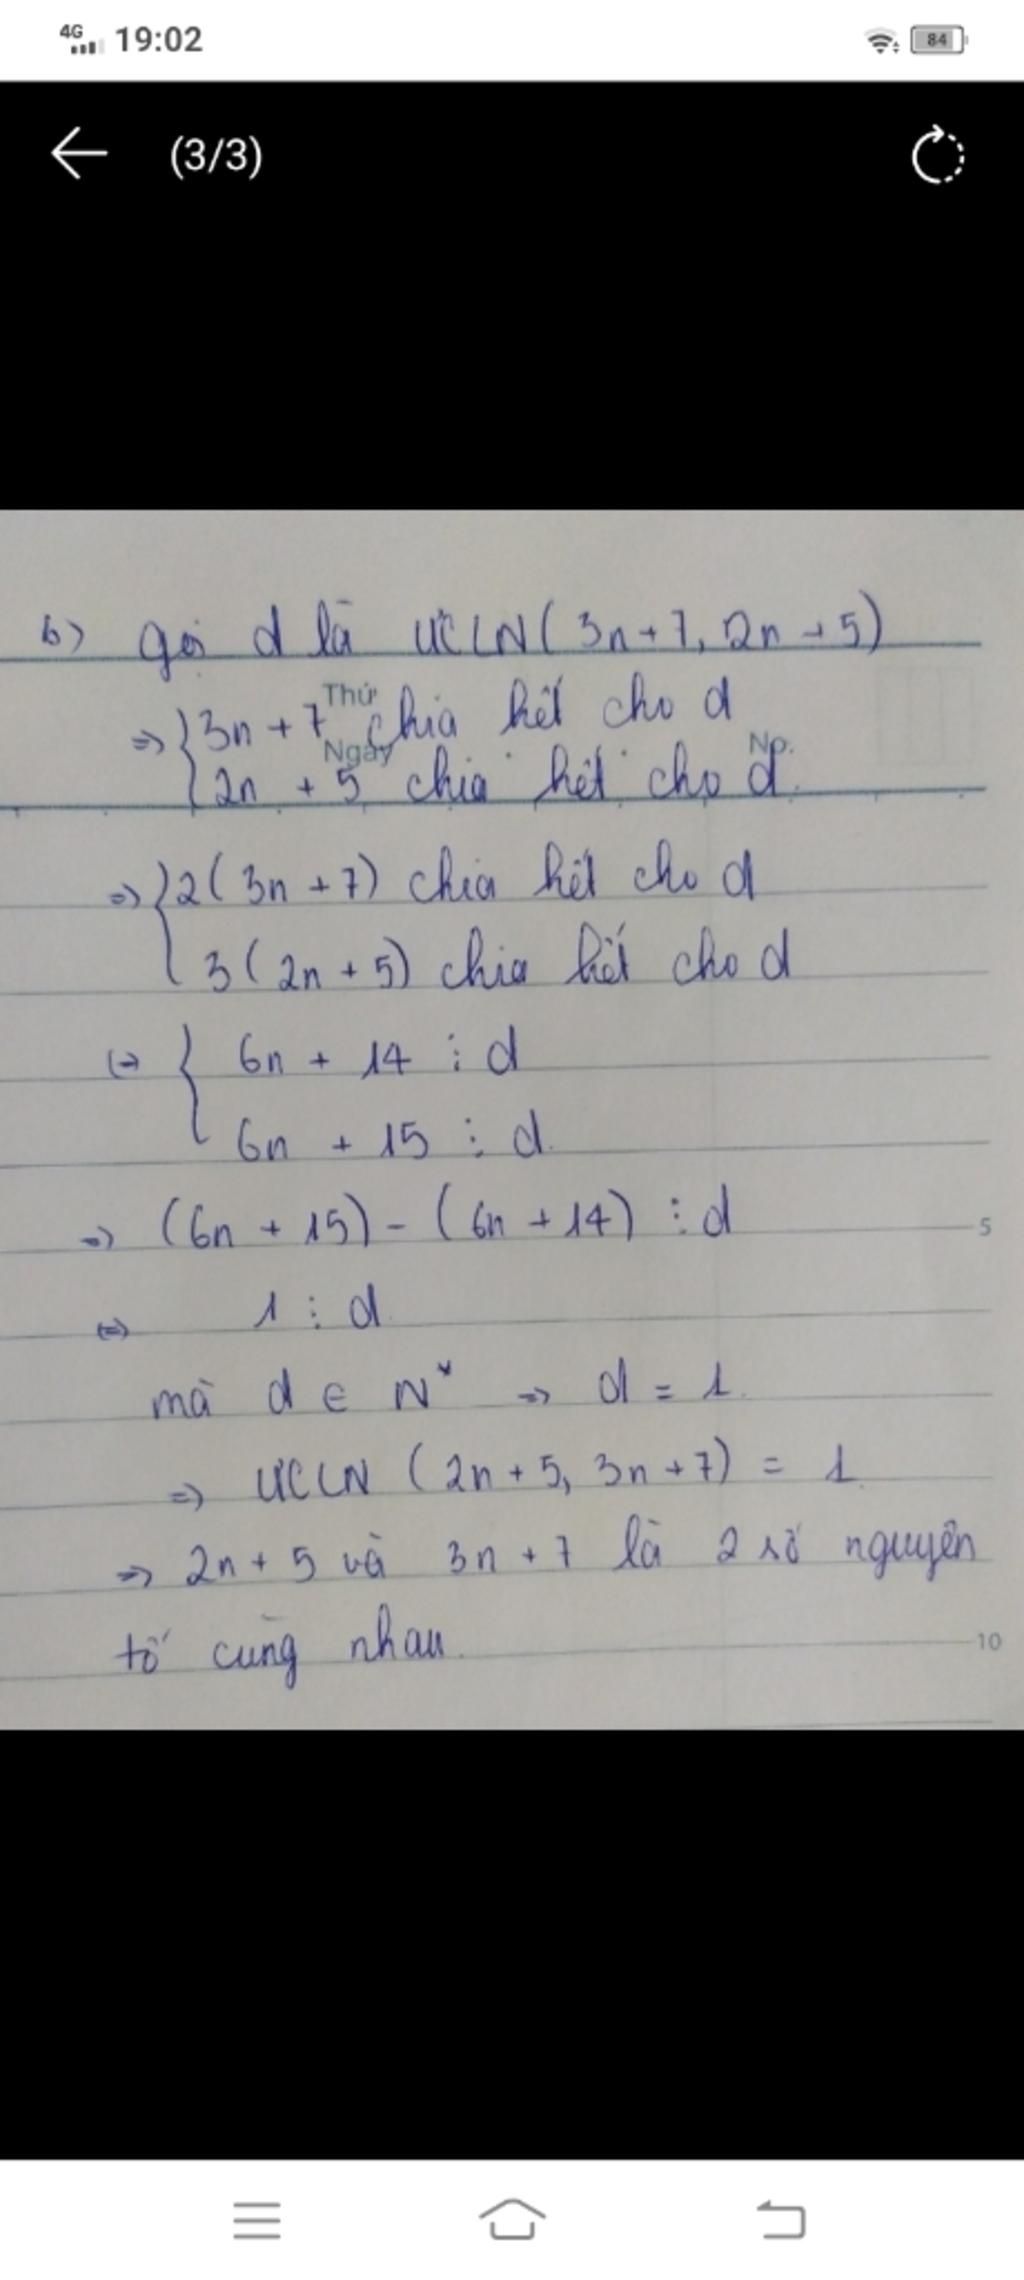 4G 19:02 84
(3/3)
b) gọi d là ƯCLN( 3n+7, 2n+5)
Thứ
⇒ { 3n + 7 chia hết cho d
Ngày No.
2n + 5 chia hết cho d.
⇒ { 2( 3n + 7) chia hết cho d
3( 2n + 5) chia hết cho d
(⇒ { 6n + 14 ⋮ d
6n + 15 ⋮ d.
⇒ (6n + 15) - ( 6n + 14) ⋮ d 5
(⇒) 1 ⋮ d.
mà d ∈ N* ⇒ d = 1.
⇒ ƯCLN ( 2n + 5, 3n + 7) = 1.
⇒ 2n + 5 và 3n + 7 là 2 số nguyên
tố cùng nhau. 10